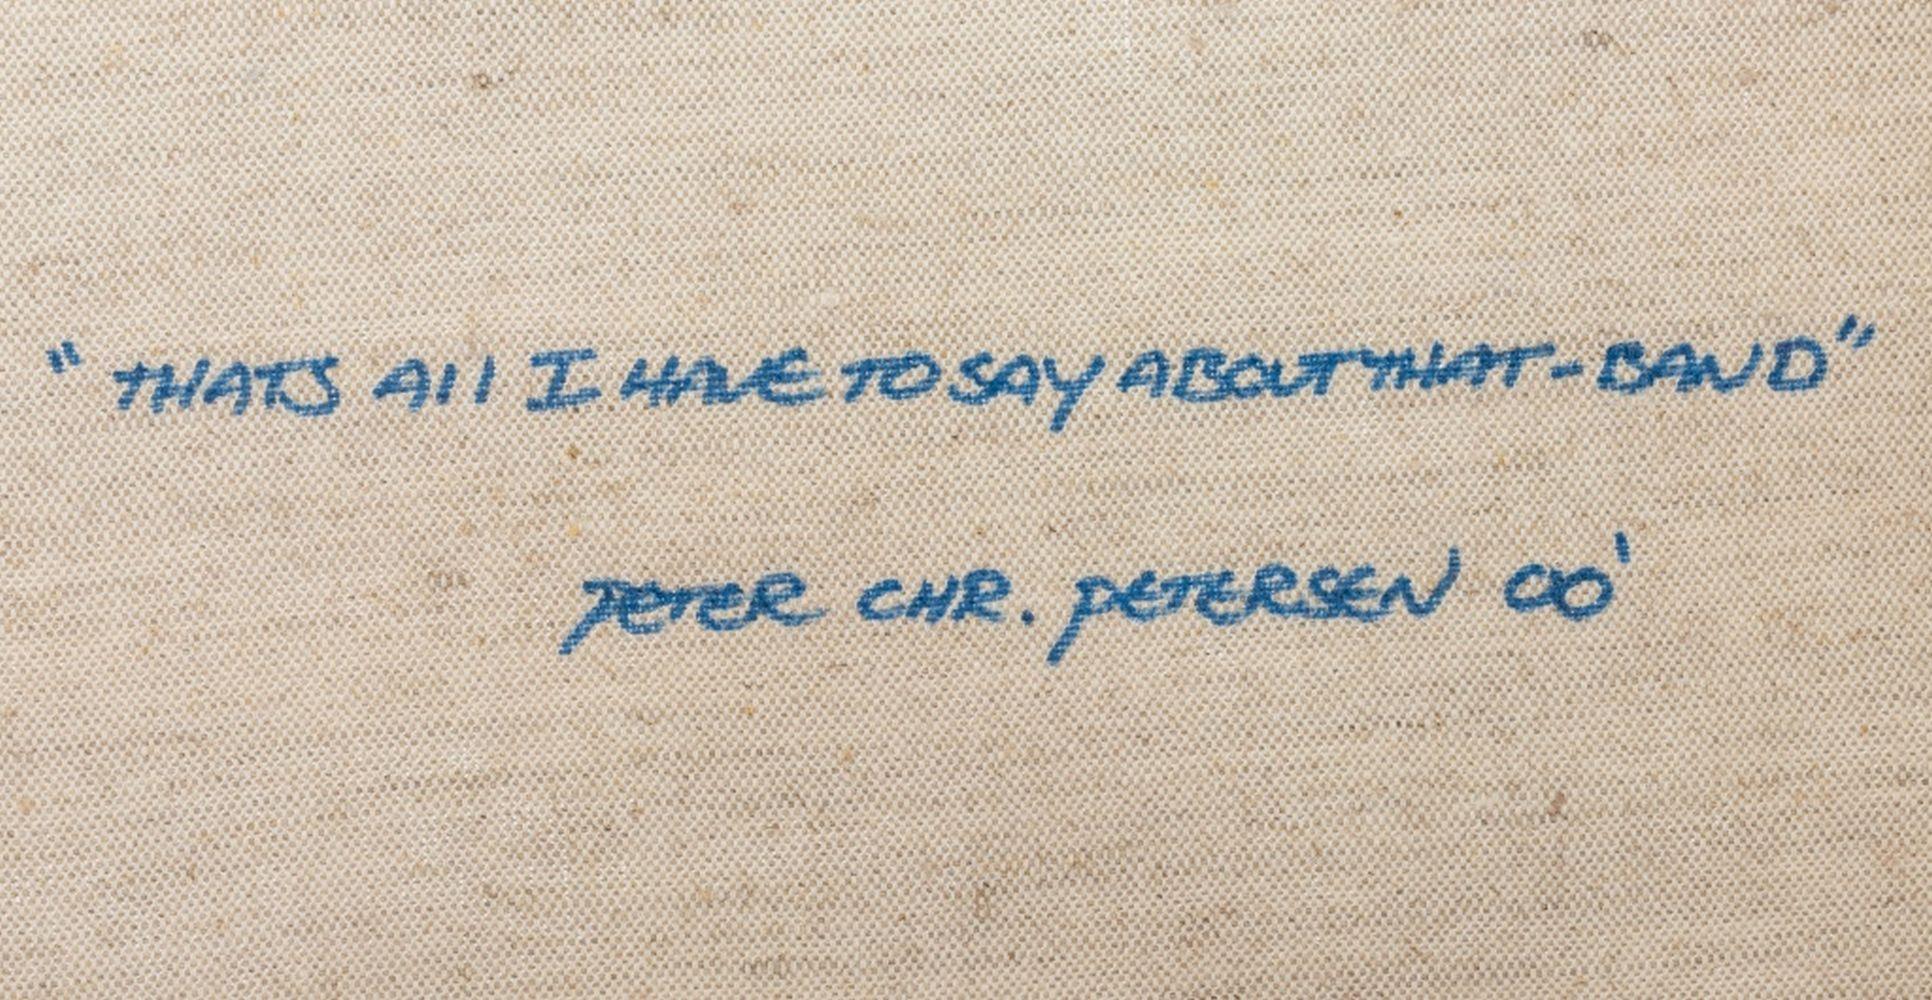 "THATS All I HAVE TO SAY ABOUT THAT-BAND"
PETER CHR. PETERSEN 00'